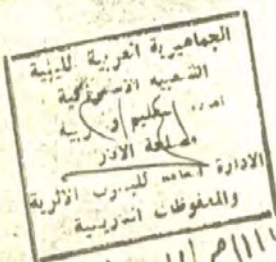 الجماهيرية العربية الليبية
الشعبية الاشتراكية
أمانة التعليم و التربية
مصلحة الاثار
الادارة العامة للبحوث الاثرية
والمحفوظات التاريخية